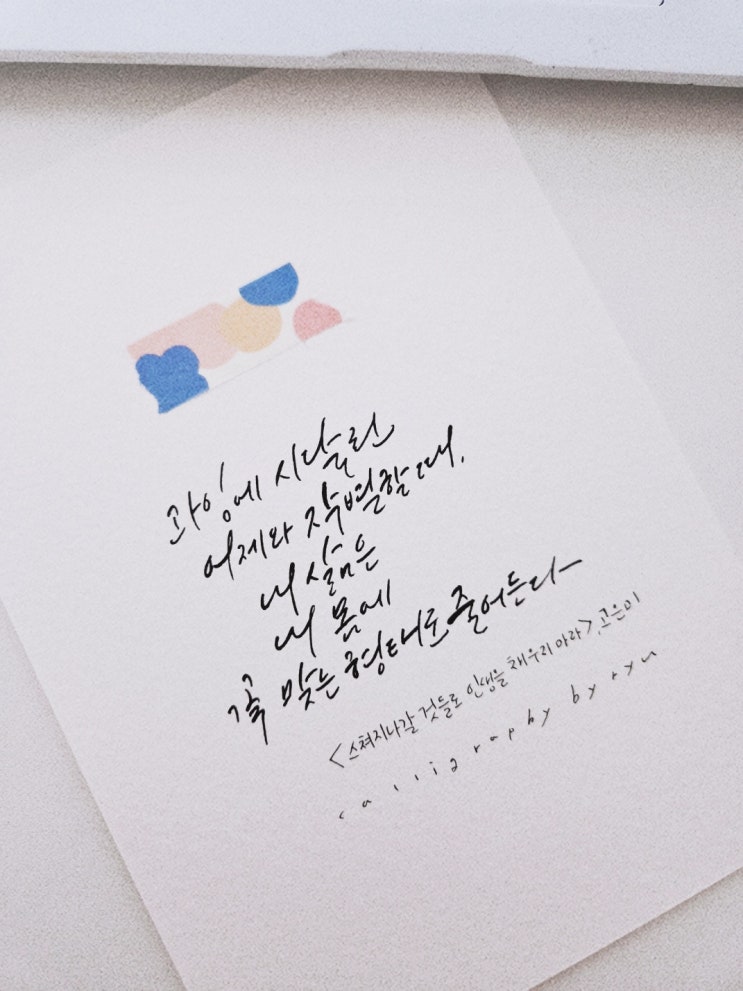 과잉에 시달린
어제와 작별할 때,
내 삶은
내 몸에
꼭 맞는 형태로 줄어든다
<스쳐지나갈 것들로 인생을 채우지 마라>, 고은미
calligraphy by ryu